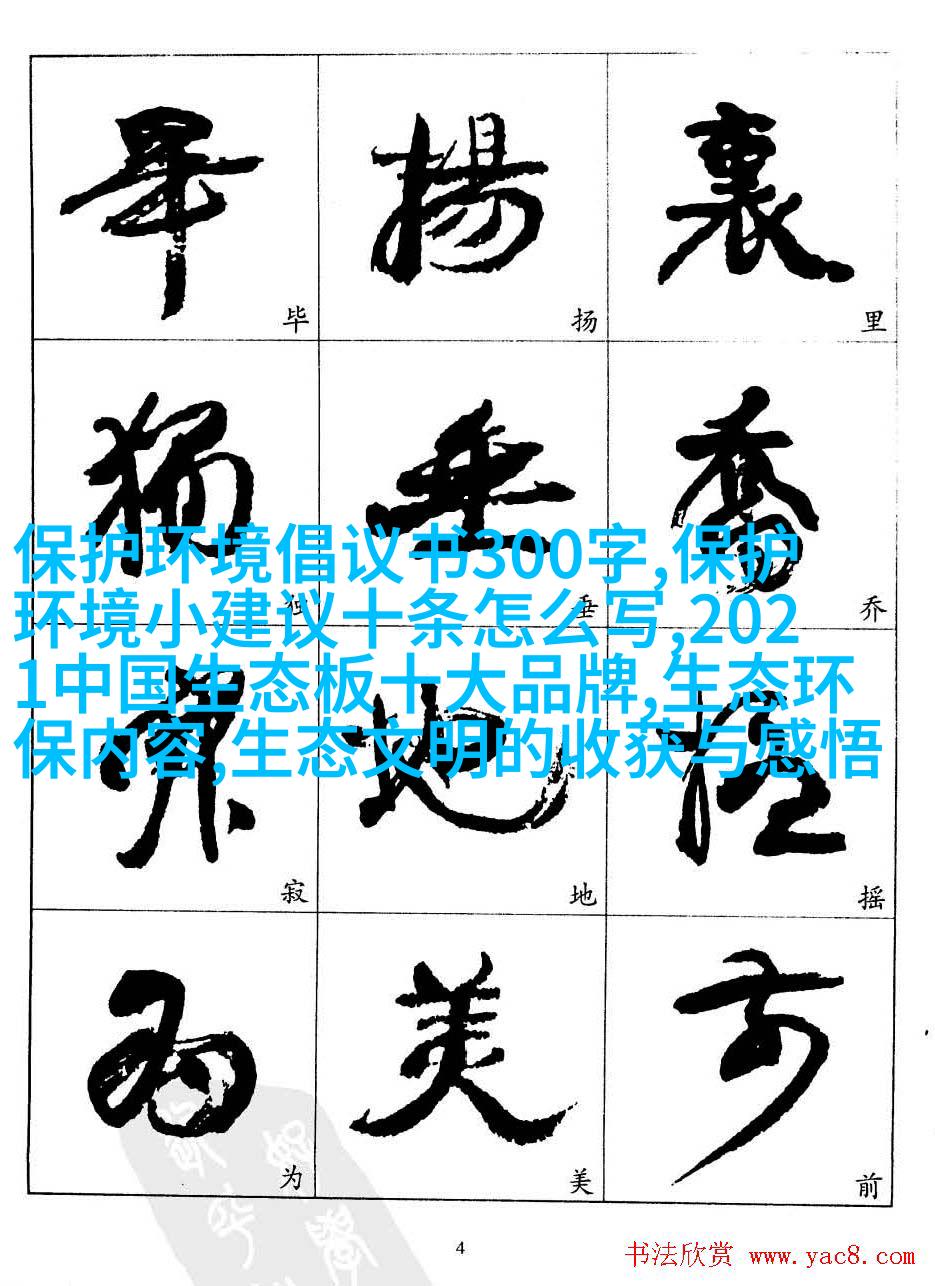 畢 揚 裏
毕 扬 里
獨 垂 喬
保护环境倡议书300字,保护
独 垂 乔
环境小建议十条怎么写,202
1中国生态板十大品牌,生态环
保内容,生态文明的收获与感悟
寂 地 摇
寂 地 摇
为 美 前
为 美 前
4
书法欣赏 www.yac8.com